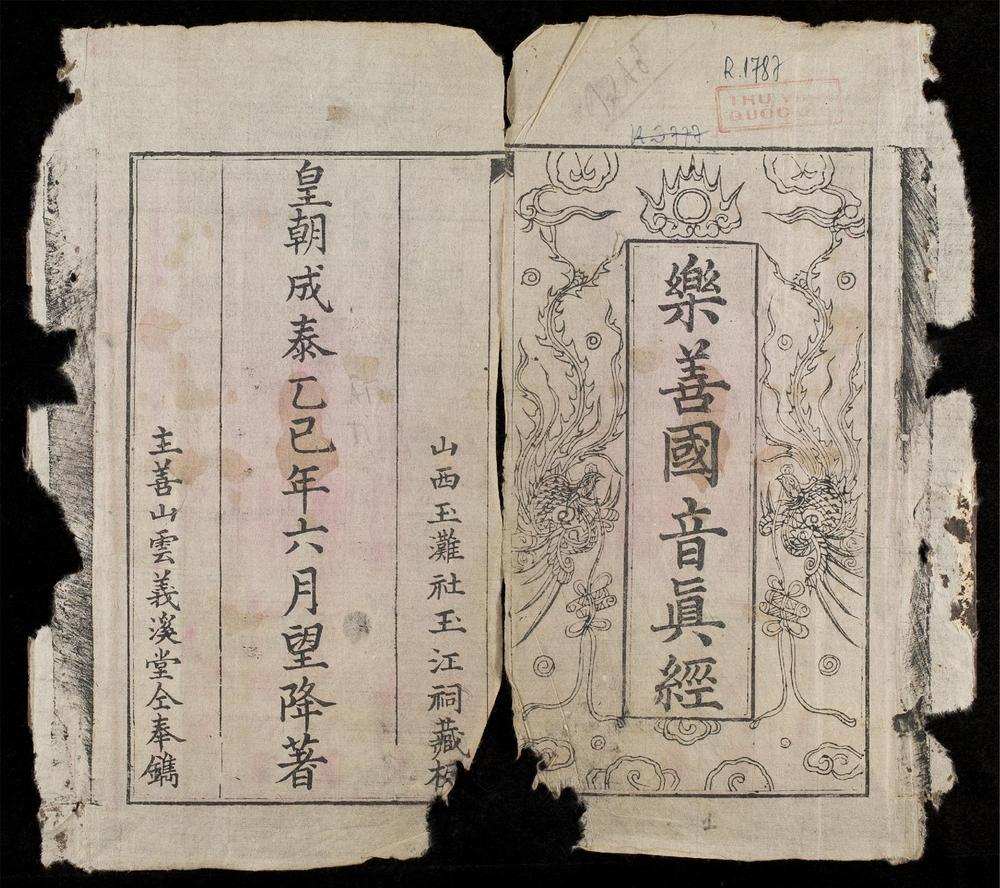 R.1787
THU V
QUOC
樂善國音眞經
山西玉灘社玉江祠藏板
皇朝成泰乙巳年六月望降著
主善山雲義溪堂仝奉鐫